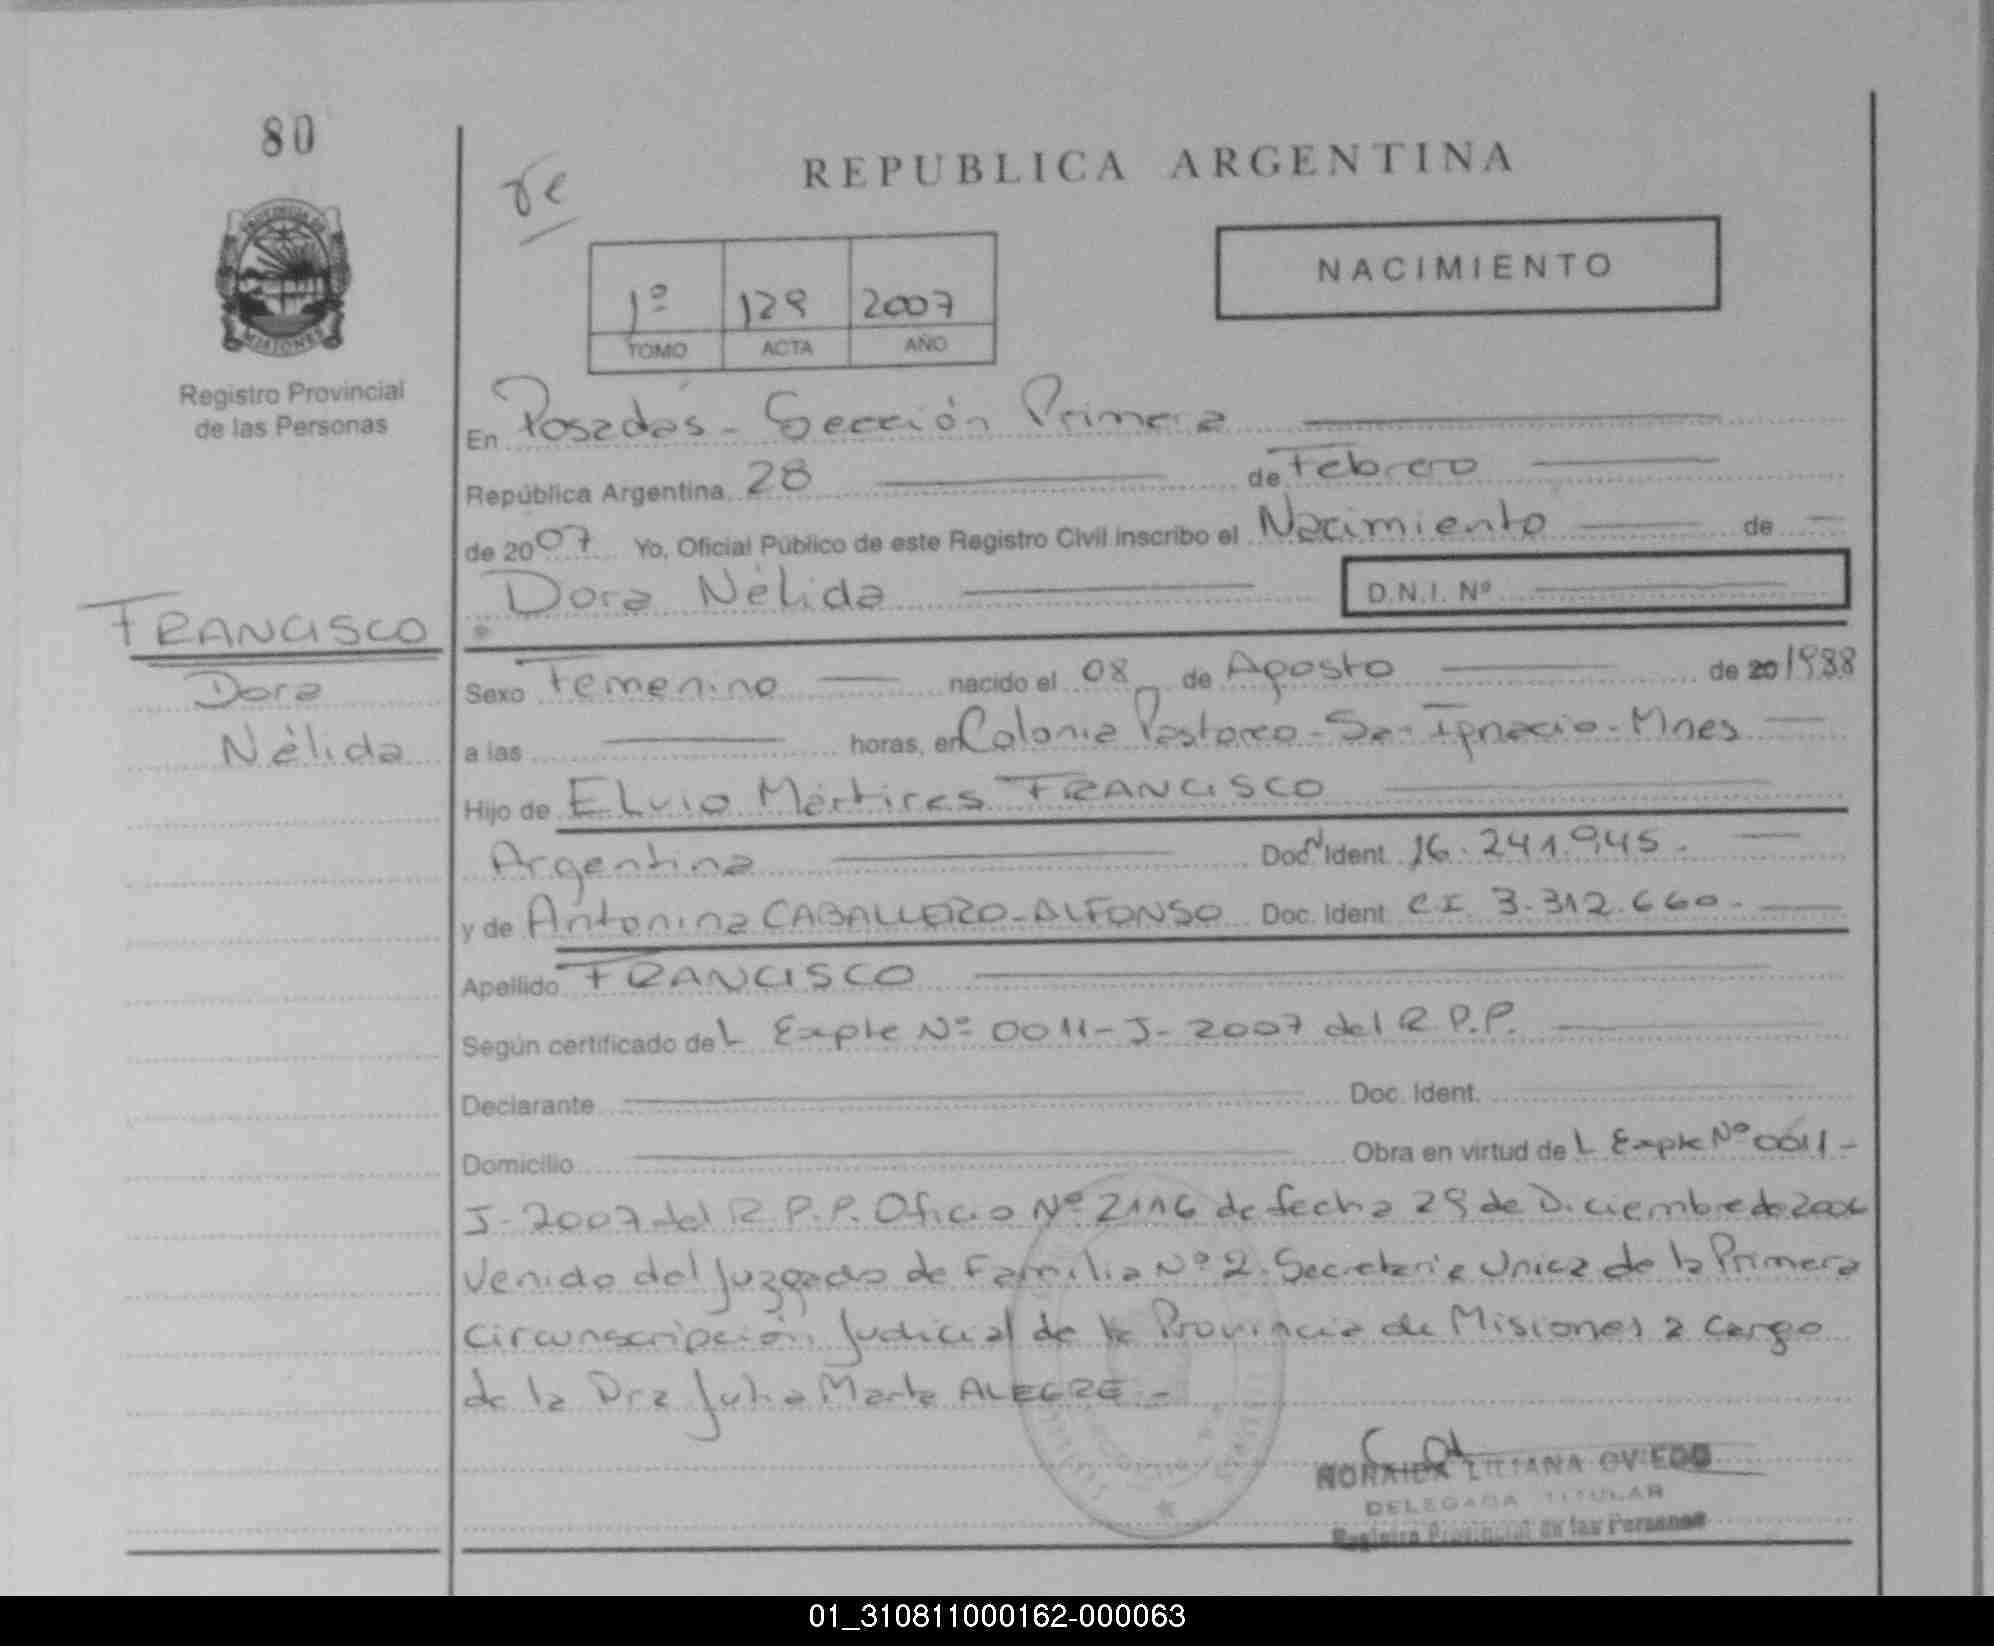 80
REPUBLICA ARGENTINA
NACIMIENTO
1º 129 2007
TOMO ACTA AÑO
MISIONES
Registro Provincial
de las Personas
En Posadas - Sección Primera
República Argentina, 28 de Febrero
de 2007 Yo, Oficial Público de este Registro Civil inscribo el Nacimiento de
Dora Nélida D.N.I. Nº
FRANCISCO
Dora
Nélida
Sexo Femenino nacido el 08 de Agosto de 20 1988
a las horas, en Colonia Pastoreo - Sa- Ignacio - Mnes
Hijo de Elvio Mártires FRANCISCO
Argentina Doc N Ident 16.241.945.
y de Antonina CABALLERO - ALFONSO Doc. Ident CI 3.312.660.
Apellido FRANCISCO
Según certificado del Expte Nº 0011-J-2007 del R.P.P.
Declarante Doc. Ident.
Domicilio Obra en virtud del Expte Nº 0011-
J-2007 del R.P.P. Oficio Nº 2116 de fecha 29 de Diciembre de 2006
venido del Juzgado de Familia Nº 2 Secretaria Unica de la Primera
circunscripción Judicial de la Provincia de Misiones a cargo
de la Dra Julia Marta ALEGRE -
NORAIDA LILIANA OVIEDO
DELEGADA TITULAR
Registro Provincial de las Personas
01_310811000162-000063